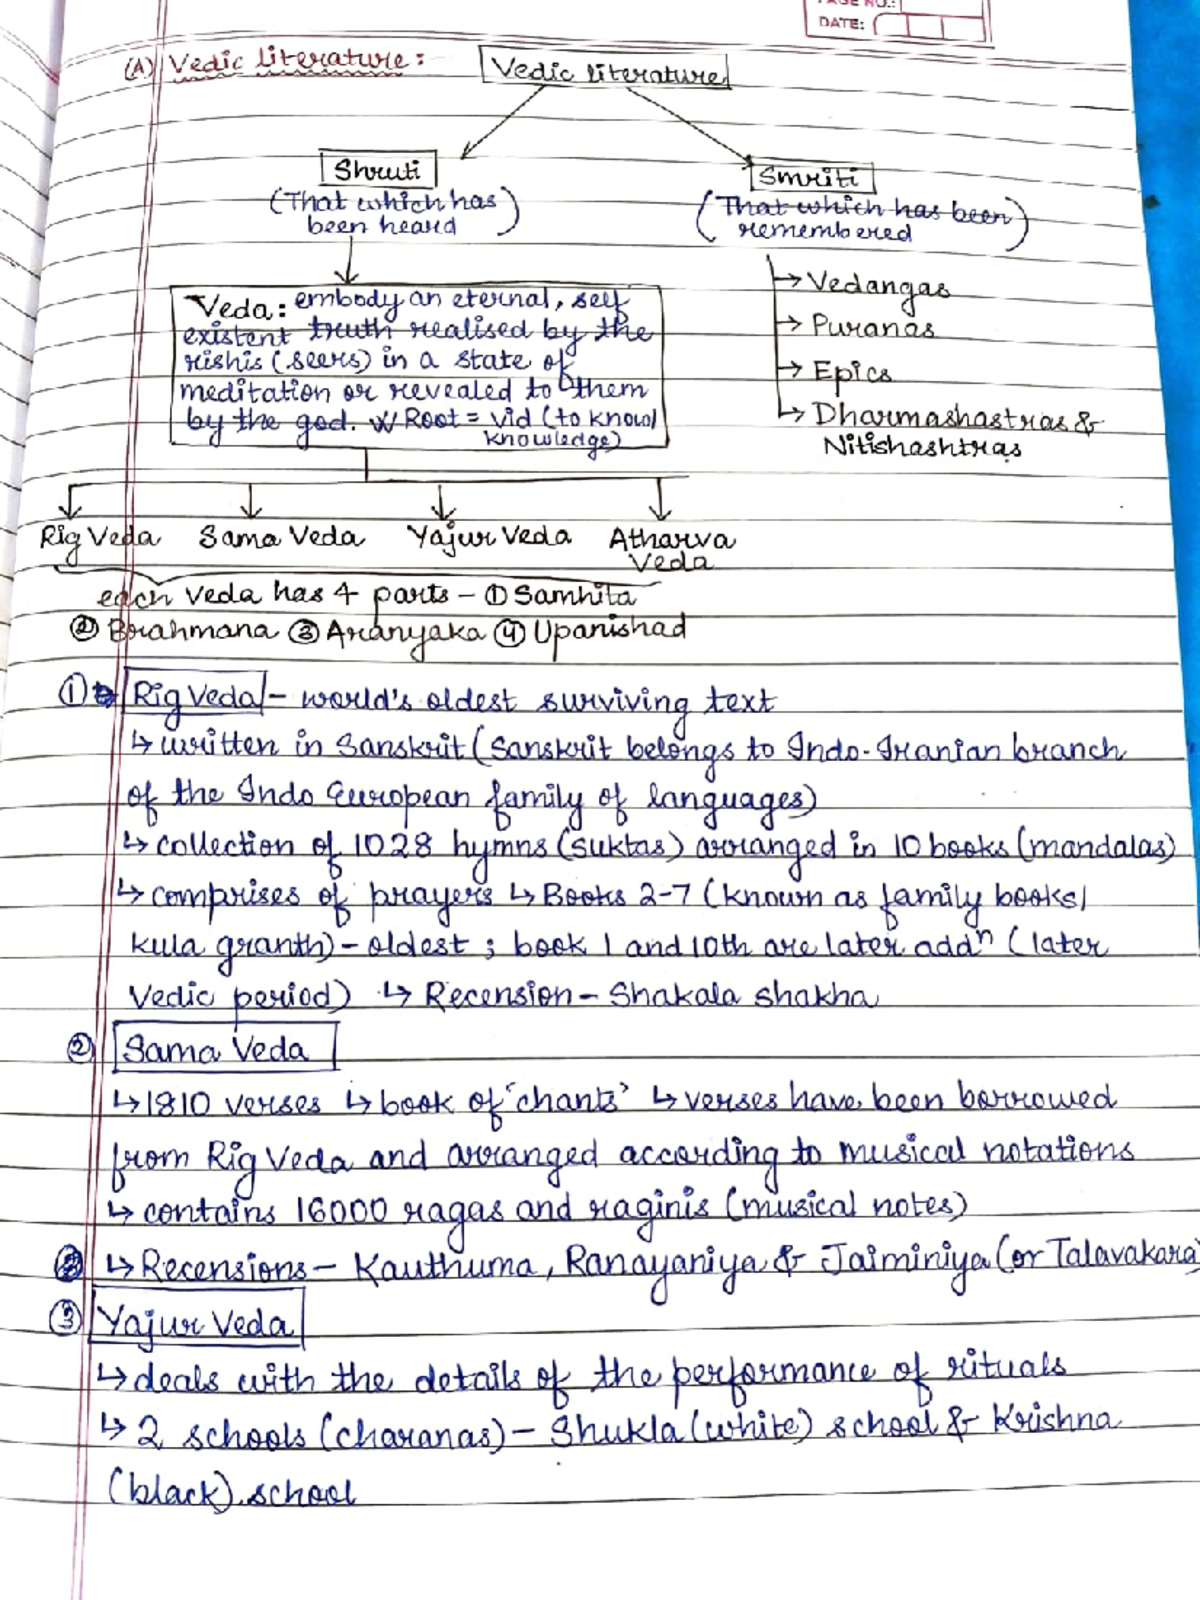 PAGE NO.:
DATE:
(A) Vedic literature:
Vedic literature
Shruti
(That which has
been heard)
Smriti
(That which has been
remembered)
→ Vedangas
→ Puranas
→ Epics
↳ Dharmashastras &
Nitishashtras
Veda: embody an eternal, self
existent truth realised by the
rishis (seers) in a state of
meditation or revealed to them
by the god. Root = vid (to know/
knowledge)
Rig Veda Sama Veda Yajur Veda Atharva
Veda
each Veda has 4 parts - ① Samhita
② Brahmana ③ Aranyaka ④ Upanishad
① Rig Veda - world's oldest surviving text
↳ written in Sanskrit (Sanskrit belongs to Indo-Iranian branch
of the Indo European family of languages)
↳ collection of 1028 hymns (suktas) arranged in 10 books (mandalas)
↳ comprises of prayers ↳ Books 2-7 (known as family books/
kula granth) - oldest ; book 1 and 10th are later addⁿ (later
Vedic period) ↳ Recension - Shakala shakha
② Sama Veda
↳ 1810 verses ↳ book of 'chants' ↳ verses have been borrowed
from Rig Veda and arranged according to musical notations
↳ contains 16000 ragas and raginis (musical notes)
↳ Recensions - Kauthuma, Ranayaniya & Jaiminiya (or Talavakara)
③ Yajur Veda
↳ deals with the details of the performance of rituals
↳ 2 schools (charanas) - Shukla (white) school & Krishna
(black) school